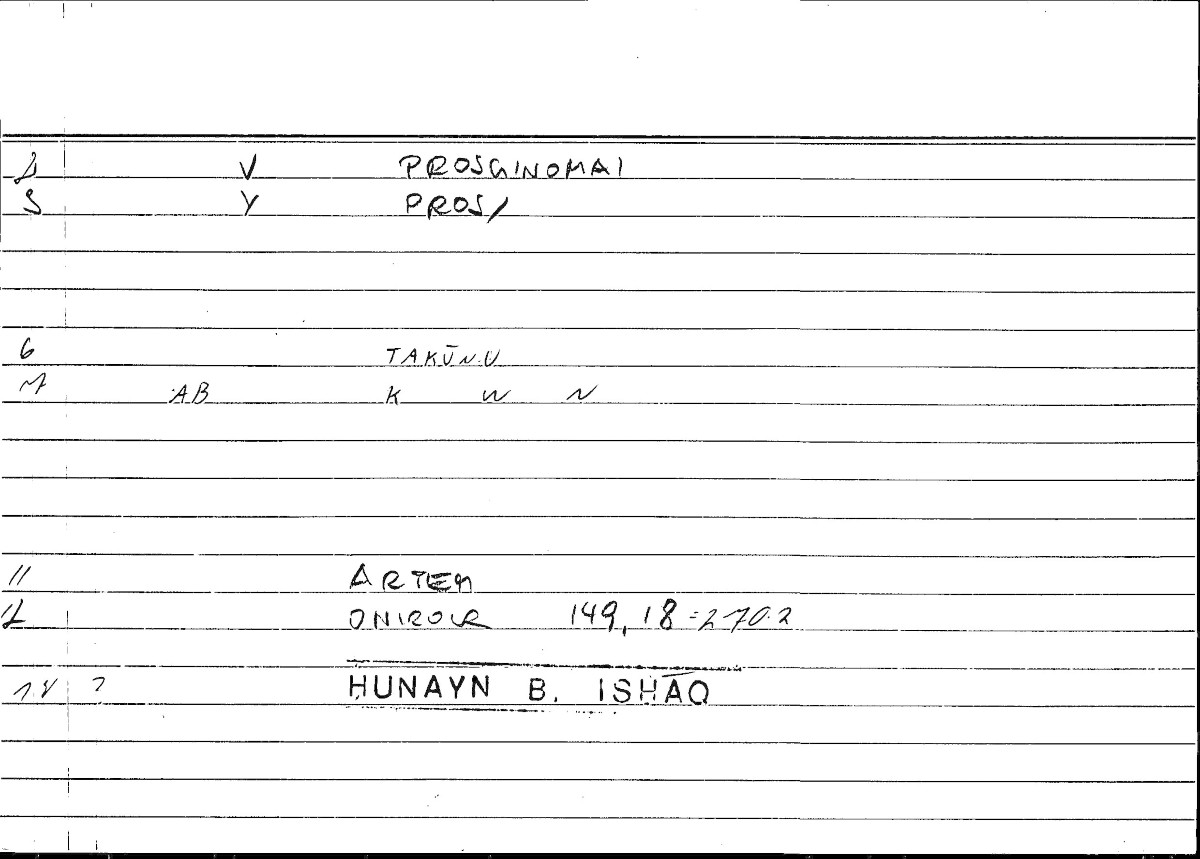 V PROSGINOMAI
Y PROS/
6 TAKŪNU
AB K W N
11 ARTEM
ONIROCR 149,18=270.2
14 ? HUNAYN B. ISHĀQ